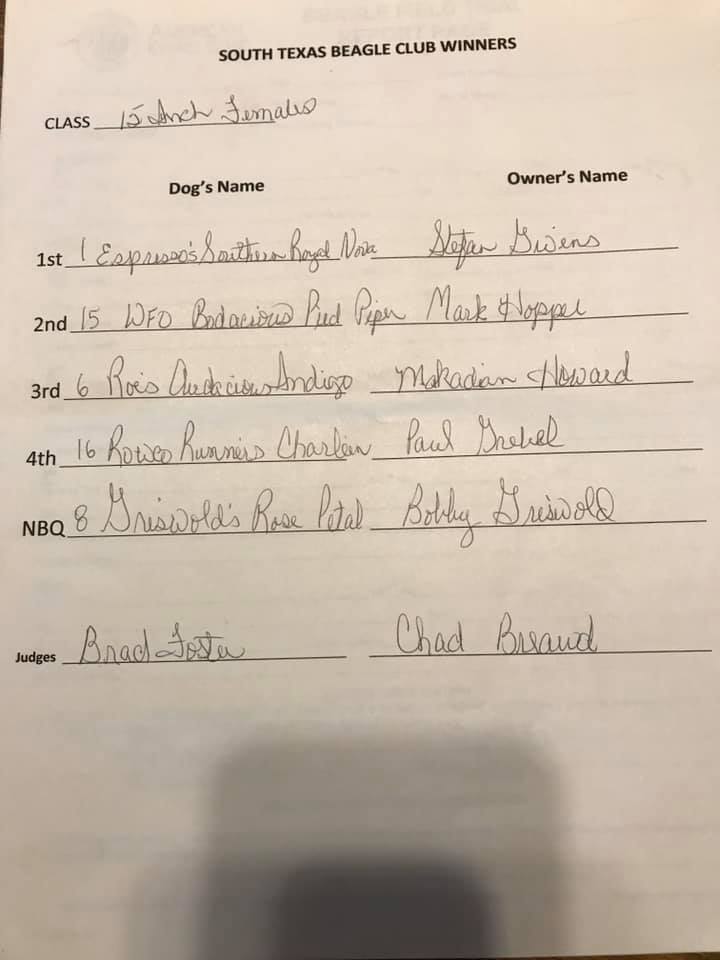 SOUTH TEXAS BEAGLE CLUB WINNERS
CLASS 15 Inch Females
Dog's Name Owner's Name
1st 1 Espresso's Southern Royal Nova Stefan Givens
2nd 15 WFO Bodacious Pied Piper Mark Hopper
3rd 6 Roi's Audacious Indigo Makadian Howard
4th 16 Rowco Runners Charlien Paul Grebel
NBQ 8 Griswold's Rose Petal Bobby Griswold
Judges Brad Foster Chad Breaud